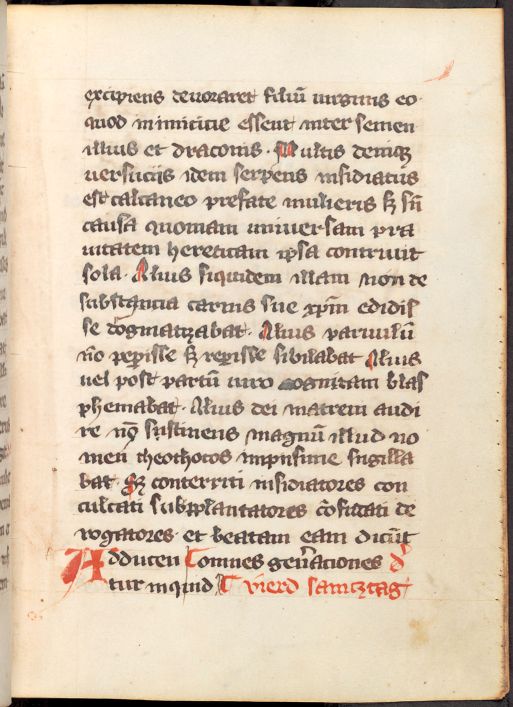 excipiens deuoraret filiū uirginis eo
quod inimicicie essent inter semen
illius et draconis · Multis deniqꝫ
uersucijs idem serpens insidiatus
est calcaneo prefate mulieris sꝫ sn̄
causa quoniam uniuersam pra
uitatem hereticam ip̄a contriuit
sola · Alius siquidem illam non de
substancia carnis sue xp̄m edidis
se dogmatizabat · Alius paruulū
nō peperisse sꝫ reperisse sibilabat Alius
uel post partū uiro cognitam blas
phemabat · Alius dei matrem audi
re nō sustinens magnū illud no
men theothocos inpiissime sugilla
bat · Sꝫ contriti insidiatores con
culcati subplantatores cōfutati de
rogatores · et beatam eam dicūt
Adducen omnes gen̄aciones
tur inquid vierd samcztag